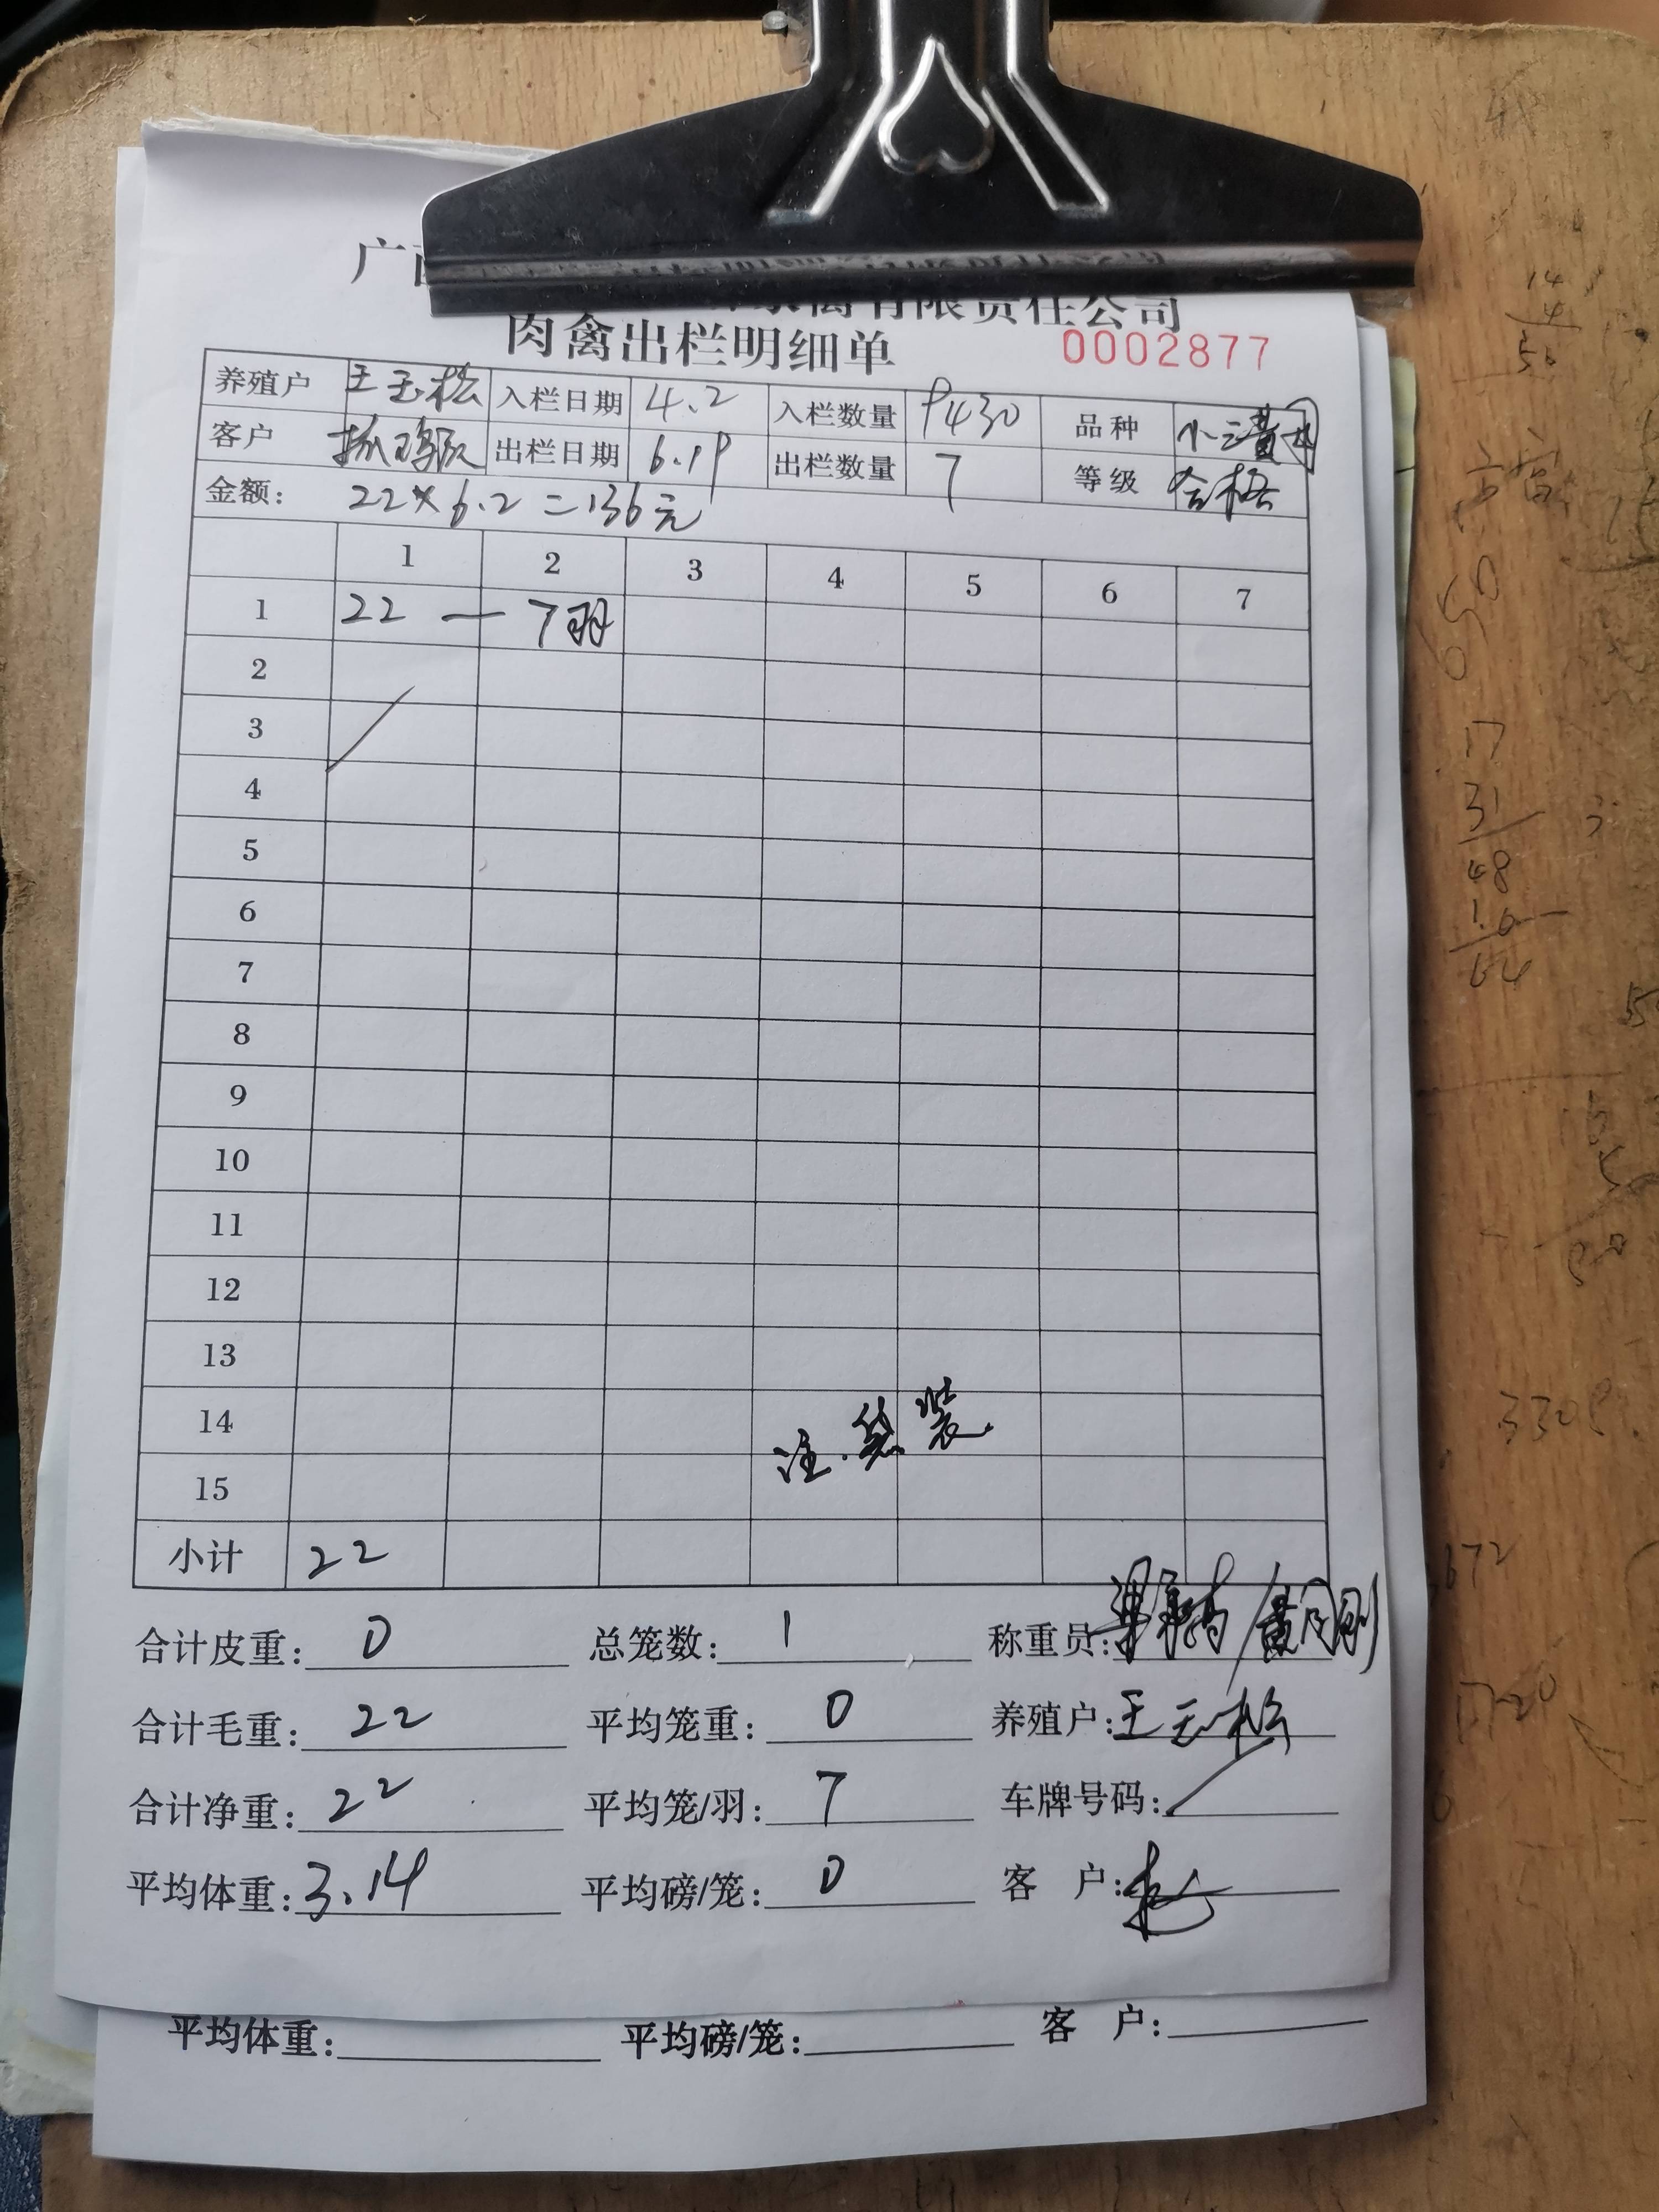 广西
家禽有限责任公司
肉禽出栏明细单 0002877
养殖户 王玉松 入栏日期 4.2 入栏数量 9430 品种 小三黄母
客户 抓鸡队 出栏日期 6.19 出栏数量 7 等级 合格
金额: 22×6.2=136元
1 2 3 4 5 6 7
1 22 — 7羽
2
3
4
5
6
7
8
9
10
11
12
13
14
注.袋装
15
小计 22
合计皮重: 0 总笼数: 1 称重员:
合计毛重: 22 平均笼重: 0 养殖户: 王玉松
合计净重: 22 平均笼/羽: 7 车牌号码:
平均体重: 3.14 平均磅/笼: 0 客 户:
平均体重: 平均磅/笼: 客 户:
14
4
50
650
17
31
48
16
64
3308
672
1720